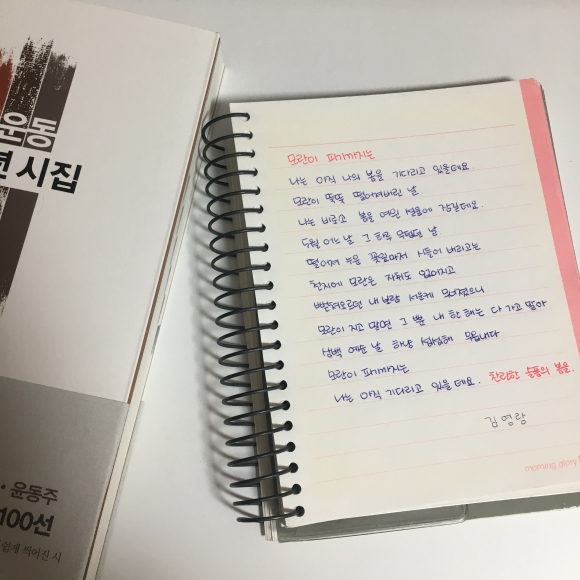 운동
시집
• 윤동주
100선
쉽게 씌어진 시
모란이 피기까지는
나는 아직 나의 봄을 기다리고 있을테요
모란이 뚝뚝 떨어져버린 날
나는 비로소 봄을 여읜 설움에 잠길테요.
5월 어느 날 그 하루 무덥던 날
떨어져 누운 꽃잎마저 시들어 버리고는
천지에 모란은 자취도 없어지고
뻗쳐오르던 내 보람 서운케 무너졌으니
모란이 지고 말면 그 뿐 내 한 해는 다 가고 말아
삼백 예순 날 하냥 섭섭해 우옵내다
모란이 피기까지는
나는 아직 기다리고 있을테요. 찬란한 슬픔의 봄을.
김영랑
morning glory